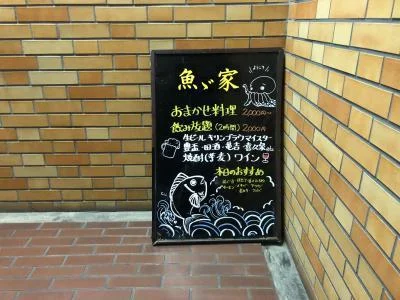 ようこそ
魚ゞ家
おまかせ料理 2,000円〜
飲み放題(2時間) 2,000円
生ビール キリンブラウマイスター
豊盃・田酒・亀吉・喜久泉etc
焼酎(芋麦)ワイン
本日のおすすめ